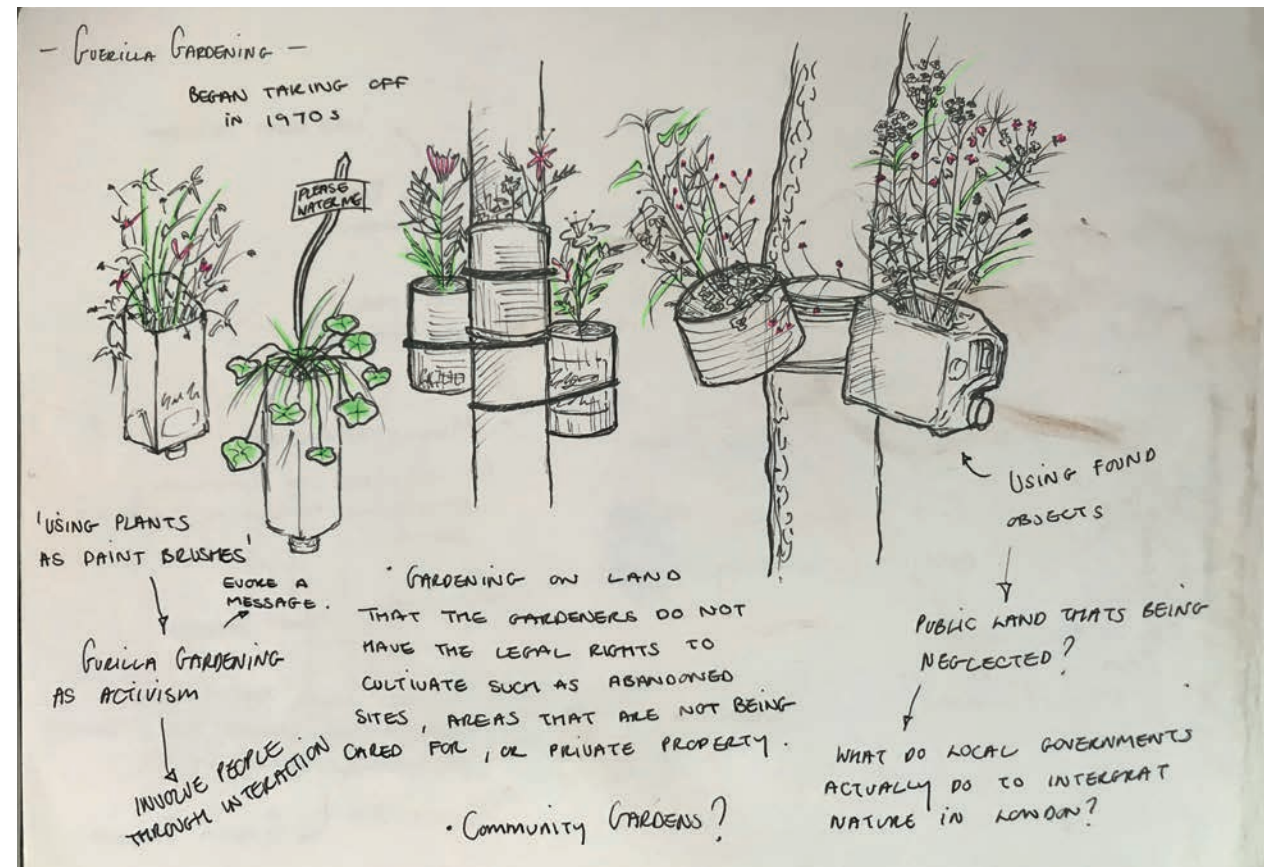 - GUERILLA GARDENING -
BEGAN TAKING OFF
IN 1970S
PLEASE
WATER ME
'USING PLANTS
AS PAINT BRUSHES'
EVOKE A
MESSAGE.
GURILLA GARDENING
AS ACTIVISM
INVOLVE PEOPLE
THROUGH INTERACTION
• GARDENING ON LAND
THAT THE GARDENERS DO NOT
HAVE THE LEGAL RIGHTS TO
CULTIVATE SUCH AS ABANDONED
SITES, AREAS THAT ARE NOT BEING
CARED FOR, OR PRIVATE PROPERTY.
• COMMUNITY GARDENS?
USING FOUND
OBJECTS
PUBLIC LAND THATS BEING
NEGLECTED?
WHAT DO LOCAL GOVERNMENTS
ACTUALLY DO TO INTERGRAT
NATURE IN LONDON?